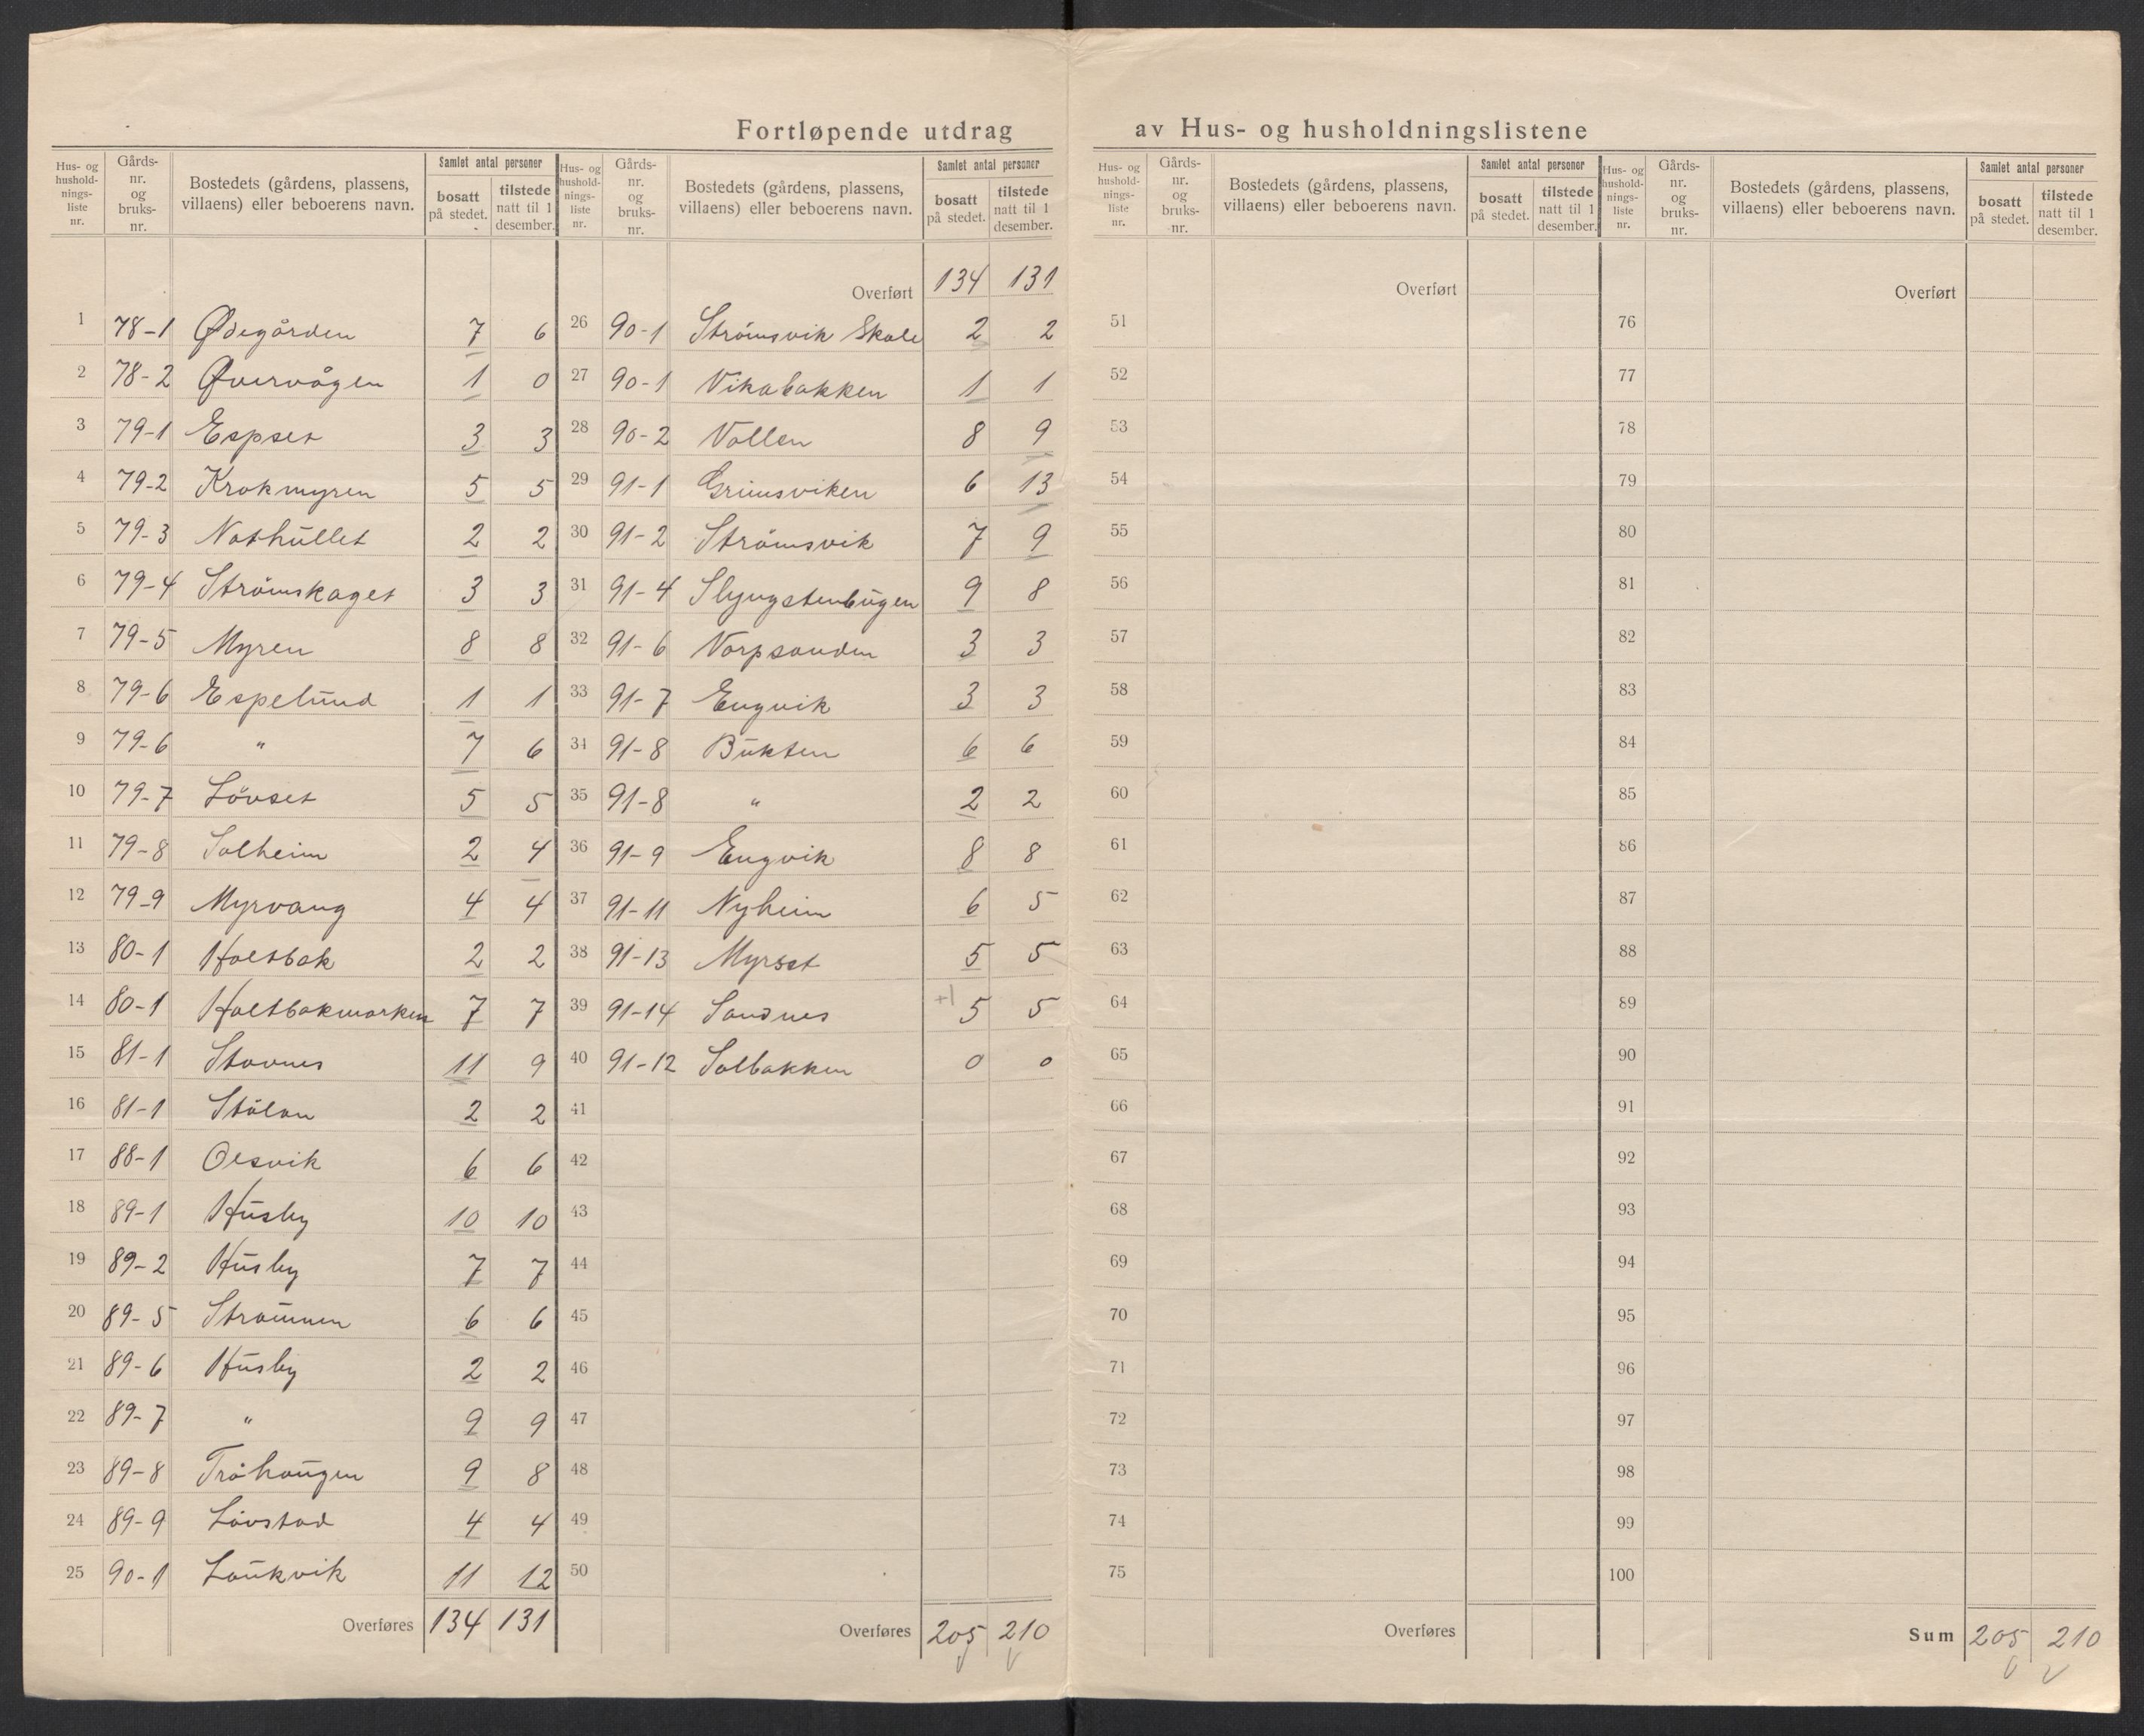 Fortløpende utdrag av Hus- og husholdningslistene
Hus- og hushold-nings-liste nr. Gårds-nr. og bruks-nr. Bostedets (gårdens, plassens, villaens) eller beboerens navn. Samlet antal personer bosatt på stedet. tilstede natt til 1 desember.
1 78-1 Ødegården 7 6
2 78-2 Øvervågen 1 0
3 79-1 Espset 3 3
4 79-2 Krokmyren 5 5
5 79-3 Nothullet 2 2
6 79-4 Strömskaget 3 3
7 79-5 Myren 8 8
8 79-6 Espelund 1 1
9 79-6 " 7 6
10 79-7 Lövset 5 5
11 79-8 Solheim 2 4
12 79-9 Myrvang 4 4
13 80-1 Holtbak 2 2
14 80-1 Holtbakmarken 7 7
15 81-1 Stavnes 11 9
16 81-1 Stölan 2 2
17 88-1 Olsvik 6 6
18 89-1 Husby 10 10
19 89-2 Husby 7 7
20 89-5 Strømmen 6 6
21 89-6 Husby 2 2
22 89-7 " 9 9
23 89-8 Tråhaugen 9 8
24 89-9 Lövstad 4 4
25 90-1 Laukvik 11 12
Overføres 134 131
Hus- og hushold-nings-liste nr. Gårds-nr. og bruks-nr. Bostedets (gårdens, plassens, villaens) eller beboerens navn. Samlet antal personer bosatt på stedet. tilstede natt til 1 desember.
Overført 134 131
26 90-1 Strömsvik Skole 2 2
27 90-1 Vikabakken 1 1
28 90-2 Vollen 8 9
29 91-1 Grimsviken 6 13
30 91-2 Strömsvik 7 9
31 91-4 Slyngstenbugen 9 8
32 91-6 Vorpsanden 3 3
33 91-7 Engvik 3 3
34 91-8 Bukten 6 6
35 91-8 " 2 2
36 91-9 Engvik 8 8
37 91-11 Nyheim 6 5
38 91-13 Myrset 5 5
39 91-14 Sandnes +1 5 5
40 91-12 Solbakken 0 0
41
42
43
44
45
46
47
48
49
50
Overføres 205 210
Hus- og hushold-nings-liste nr. Gårds-nr. og bruks-nr. Bostedets (gårdens, plassens, villaens) eller beboerens navn. Samlet antal personer bosatt på stedet. tilstede natt til 1 desember.
Overført
51
52
53
54
55
56
57
58
59
60
61
62
63
64
65
66
67
68
69
70
71
72
73
74
75
Overføres
Hus- og hushold-nings-liste nr. Gårds-nr. og bruks-nr. Bostedets (gårdens, plassens, villaens) eller beboerens navn. Samlet antal personer bosatt på stedet. tilstede natt til 1 desember.
Overført
76
77
78
79
80
81
82
83
84
85
86
87
88
89
90
91
92
93
94
95
96
97
98
99
100
Sum 205 210